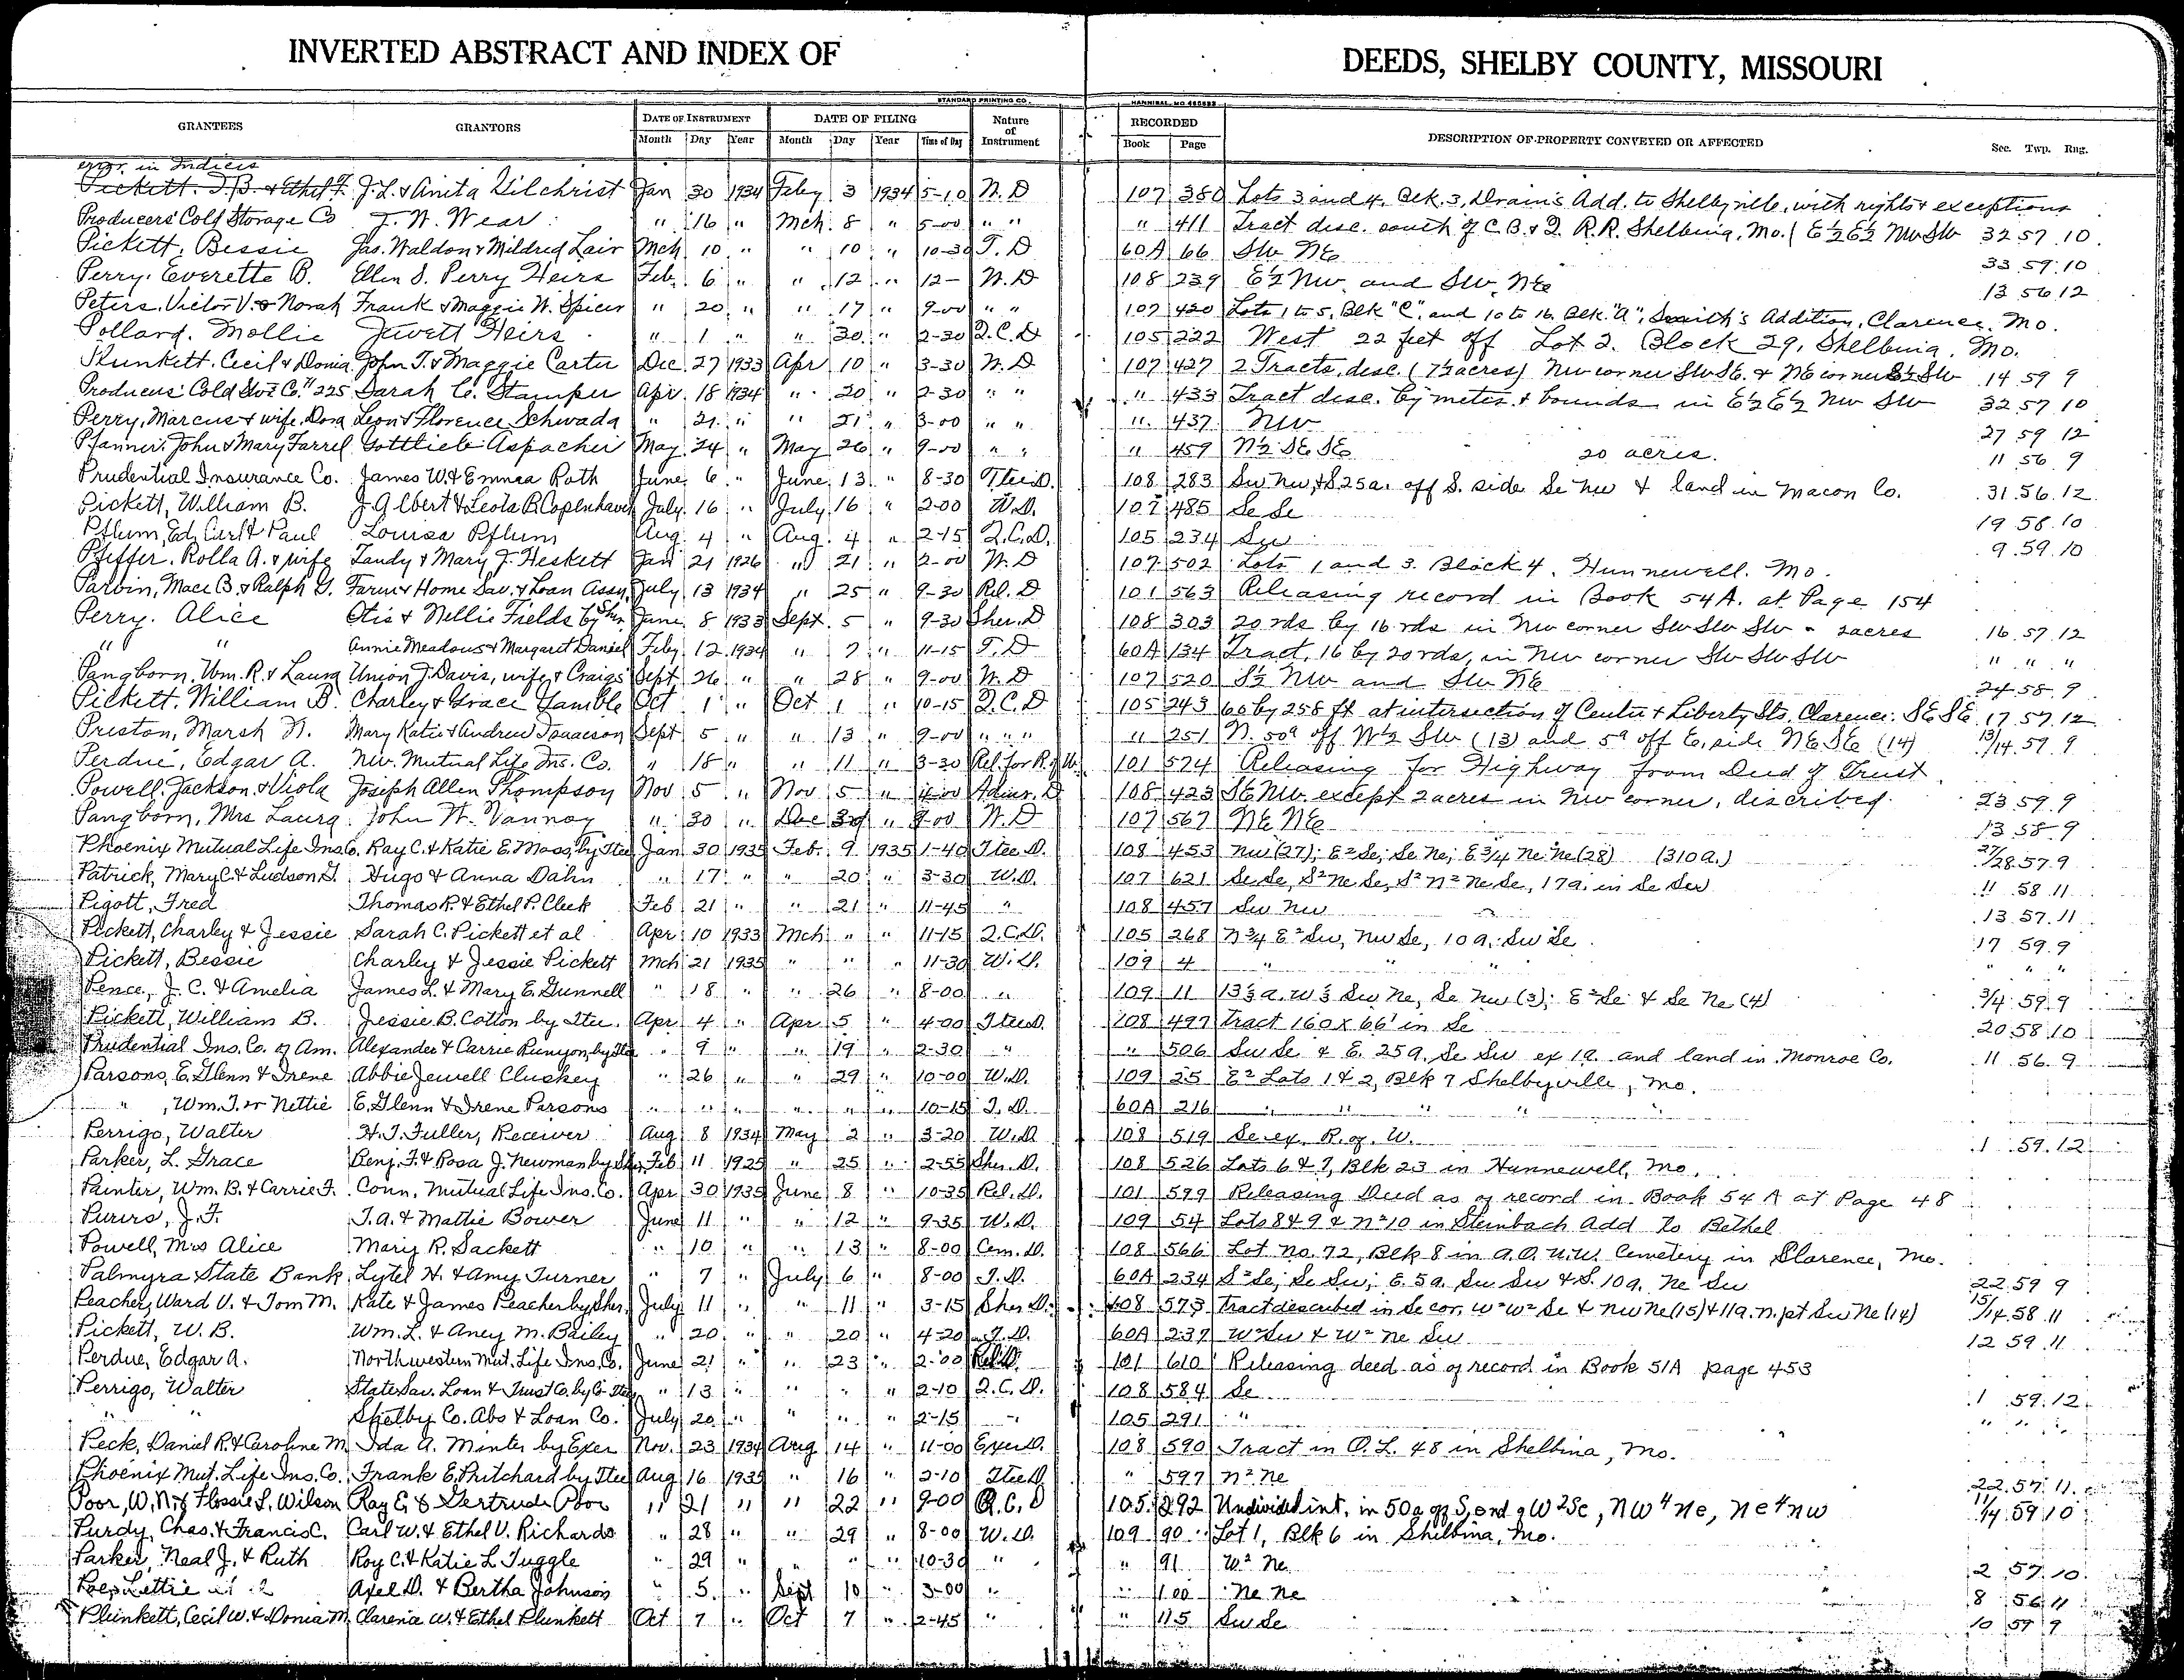 INVERTED ABSTRACT AND INDEX OF DEEDS, SHELBY COUNTY, MISSOURI
STANDARD PRINTING CO. HANNIBAL, MO
GRANTEES GRANTORS DATE OF INSTRUMENT DATE OF FILING Nature of Instrument RECORDED DESCRIPTION OF PROPERTY CONVEYED OR AFFECTED Sec. Twp. Rng.
Month Day Year Month Day Year Time of Day Book Page
error in Indices
Pickett. T.B. & Ethel F. J.L. & Anita Gilchrist Jan 30 1934 Feby 3 1934 5-10 W. D 107 380 Lots 3 and 4, Blk. 3, Drain's Add. to Shelbyville, with rights & exceptions
Producers' Cold Storage Co J. W. Wear " 16 " Mch. 8 " 5-00 " " " 411 Tract desc. south of C.B. & Q. R.R. Shelbina, Mo. ( E½ E½ NW SW 32 57 10
Pickett, Bessie Jas. Waldon & Mildred Lair Mch 10 " " 10 " 10-30 T. D 60A 66 SW NE 33 59 10
Perry. Everette B. Ellen S. Perry Heirs Feb. 6 " " 12 " 12- W. D 108 239 E½ NW. and SW, NE 13 56 12
Peters. Victor V. & Norah Frank & Maggie W. Spicer " 20 " " 17 " 9-00 " " 107 420 Lots 1 to 5, Blk "C", and 10 to 16, Blk. "A", Smith's Addition, Clarence, Mo.
Pollard. Mollie Jewett Heirs " 1 " " 30 " 2-30 Q.C.D 105 222 West 22 feet off Lot 2. Block 29, Shelbina, Mo.
Plunkett. Cecil & Donia John T. & Maggie Carter Dec. 27 1933 Apr 10 " 3-30 W. D 107 427 2 Tracts, desc. (7½ acres) NW corner SW SE. & NE corner S½ SW 14 59 9
Producers' Cold Stg. Co. "225 Sarah C. Stamper Apr. 18 1934 " 20 " 2-30 " " " 433 Tract desc. by metes & bounds in E½ E½ NW SW 32 57 10
Perry, Marcus & wife, Dora Leon & Florence Schwada " 21 " " 21 " 3-00 " " " 437 NW 27 59 12
Pfanner, John & Mary Farrel Gottlieb Aspacher May 24 " May 26 " 9-00 " " " 459 N½ SE SE 20 acres. 11 56 9
Prudential Insurance Co. James W. & Emma Roth June 6 " June 13 " 8-30 Ttee D. 108 283 Sw Nw, & S 25a. off S. side Se Nw & land in Macon Co. 31 56 12
Pickett, William B. J. Albert & Leola B. Copenhaver July 16 " July 16 " 2-00 W. D. 107 485 Se Se 19 58 10
Pflum, Ed, Curt & Paul Louisa Pflum Aug 4 " Aug. 4 " 2-15 Q.C.D. 105 234 Sw 9 59 10
Pfeffer. Rolla A. & wife Tandy & Mary J. Heskett Jan 21 1926 " 21 " 2-00 W. D 107 502 Lots 1 and 3. Block 4, Hunnewell. Mo.
Parvin, Mace B. & Ralph G. Farm & Home Sav. & Loan Assn. July 13 1934 " 25 " 9-30 Rel. D 101 563 Releasing record in Book 54A. at Page 154
Perry. Alice Otis & Nellie Fields by Shr. June 8 1933 Sept. 5 " 9-30 Sher. D 108 303 20 rds by 16 rds in NW corner SW SW SW - 2acres 16 57 12
" " Annie Meadows & Margaret Daniel Feby 12 1934 " 7 " 11-15 T. D 60A 134 Tract, 16 by 20 rds, in NW corner SW SW SW " " "
Pangborn. Wm. R. & Laura Union J. Davis, wife & Craigs Sept 26 " " 28 " 9-00 W. D 107 520 S½ NW and SW NE 24 58 9
Pickett. William B. Charley & Grace Gamble Oct 1 " Oct 1 " 10-15 Q.C.D 105 243 60 by 258 ft at intersection of Center & Liberty Sts. Clarence. SE SE 17 57 12
Preston, Marsh N. Mary Katie & Andrew Isaacson Sept 5 " " 13 " 9-00 " " " " 251 N. 50a off W½ SW (13) and 5a off E. side NE SE (14) 13/14 59 9
Perdue, Edgar A. N.W. Mutual Life Ins. Co. " 18 " " 11 " 3-30 Rel. for R. of W. 101 574 Releasing for Highway from Deed of Trust
Powell, Jackson & Viola Joseph Allen Thompson Nov 5 " Nov 5 " 4-00 Admr. D 108 423 SE NW. except 2 acres in NW corner, discribed. 23 59 9
Pangborn, Mrs Laura John W. Vannoy " 30 " Dec 3rd " 9-00 W. D 107 567 NE NE 13 58 9
Phoenix Mutual Life Ins Co. Ray C. & Katie E. Moss, by Ttee Jan 30 1935 Feb. 9 1935 1-40 Ttee D. 108 453 NW (27); E² Se; Se Ne; E 3/4 Ne Ne (28) (310 a.) 27/28 57 9
Patrick, Mary C. & Ludson G. Hugo & Anna Dahn " 17 " " 20 " 3-30 W. D. 107 621 Se Se, S² Ne Se, S² N² Ne Se, 17a. in Se Sw 11 58 11
Pigott, Fred Thomas R. & Ethel P. Cleek Feb 21 " " 21 " 11-45 " 108 457 Sw Nw 13 57 11
Pickett, Charley & Jessie Sarah C. Pickett et al Apr 10 1933 Mch " " 11-15 Q.C.D. 105 268 N 3/4 E² Sw, Nw Se, 10 a. Sw Se 17 59 9
Pickett, Bessie Charley & Jessie Pickett Mch 21 1935 " " " 11-30 W. D. 109 4 " " " " " "
Pence, J. C. & Amelia James L. & Mary E. Gunnell " 18 " " 26 " 8-00 " 109 11 13⅓ a. W⅓ Sw Ne, Se Nw (3); E² Se & Se Ne (4) 3/4 59 9
Pickett, William B. Jessie B. Cotton by Ttee. Apr 4 " Apr 5 " 4-00 Ttee D. 108 497 Tract 160 x 66' in Se 20 58 10
Prudential Ins. Co. of Am. Alexander & Carrie Runyon, by Ttee " 9 " " 19 " 2-30 " " 506 Sw Se & E. 25a. Se Sw ex 1a. and land in Monroe Co. 11 56 9
Parsons, E. Glenn & Irene Abbie Jewell Cluskey " 26 " " 29 " 10-00 W. D. 109 25 E² Lots 1 & 2, Blk 7 Shelbyville, Mo.
" , Wm. T. or Nettie E. Glenn & Irene Parsons " " " " " " 10-15 T. D. 60A 216 " " " " "
Perrigo, Walter H. T. Fuller, Receiver Aug 8 1934 May 2 " 3-20 W. D 108 519 Se ex. R. of W. 1 59 12
Parker, L. Grace Benj. F. & Rosa J. Newman by Shr. Feb 11 1925 " 25 " 2-55 Sher. D. 108 526 Lots 6 & 7, Blk 23 in Hunnewell, Mo.
Painter, Wm. B. & Carrie F. Conn. Mutual Life Ins. Co. Apr 30 1935 June 8 " 10-35 Rel. D. 101 599 Releasing Deed as of record in Book 54 A at Page 48
Purirs, J. F. T. A. & Mattie Bower June 11 " " 12 " 9-35 W. D. 109 54 Lots 8 & 9 & N² 10 in Steinbach Add to Bethel
Powell, Mrs Alice Mary R. Sackett " 10 " " 13 " 8-00 Cem. D. 108 566 Lot No. 72, Blk 8 in A.O.U.W. Cemetery in Clarence, Mo.
Palmyra State Bank Lytel H. & Amy Turner " 7 " July 6 " 8-00 T. D. 60A 234 S² Se; Se Sw; E. 5a. Sw Sw & S. 10a. Ne Sw 22 59 9
Peacher, Ward V. & Tom M. Kate & James Peacher by Sher. July 11 " " 11 " 3-15 Sher D. 108 573 Tract described in Se cor. W² W² Se & NW Ne (15) & 11a. N. pt Sw Ne (14) 15/14 58 11
Pickett, W. B. Wm. L. & Aney M. Bailey " 20 " " 20 " 4-20 T. D. 60A 237 W² Sw & W² Ne Sw 12 59 11
Perdue, Edgar A. Northwestern Mut. Life Ins. Co. June 21 " " 23 " 2-00 Rel. D. 101 610 Releasing deed as of record in Book 51A page 453
Perrigo, Walter State Sav. Loan & Trust Co. by Co-Ttee " 13 " " " " 2-10 Q.C.D. 108 584 Se 1 59 12
" " Shelby Co. Abs & Loan Co. July 20 " " " " 2-15 " 105 291 " " " "
Peck, Daniel R. & Caroline M. Ida A. Minter by Exer Nov. 23 1934 Aug 14 " 11-00 Exer D. 108 590 Tract in O.L. 48 in Shelbina, Mo.
Phoenix Mut. Life Ins. Co. Frank E. Pritchard by Ttee Aug 16 1935 " 16 " 2-10 Ttee D. " 597 N² Ne 22 57 11
Poor, W. N. & Flossie L. Wilson Ray E. & Gertrude Poor " 21 " " 22 " 9-00 Q.C.D 105 292 Undivided int. in 50a of S. end of W² Se, NW⁴ Ne, Ne⁴ NW 11/14 59 10
Purdy, Chas. & Francis C. Carl W. & Ethel V. Richards " 28 " " 29 " 8-00 W. D. 109 90 Lot 1, Blk 6 in Shelbina, Mo.
Parker, Neal J. & Ruth Roy C. & Katie L Tuggle " 29 " " " " 10-30 " " 91 W² Ne 2 57 10
Poe, Lettie Axel D. & Bertha Johnson " 5 " Sept 10 " 3-00 " " 100 Ne Ne 8 56 11
Plunkett, Cecil W. & Donia M. Clarence W. & Ethel Plunkett Oct 7 " Oct 7 " 2-45 " " 115 Sw Se 10 59 9